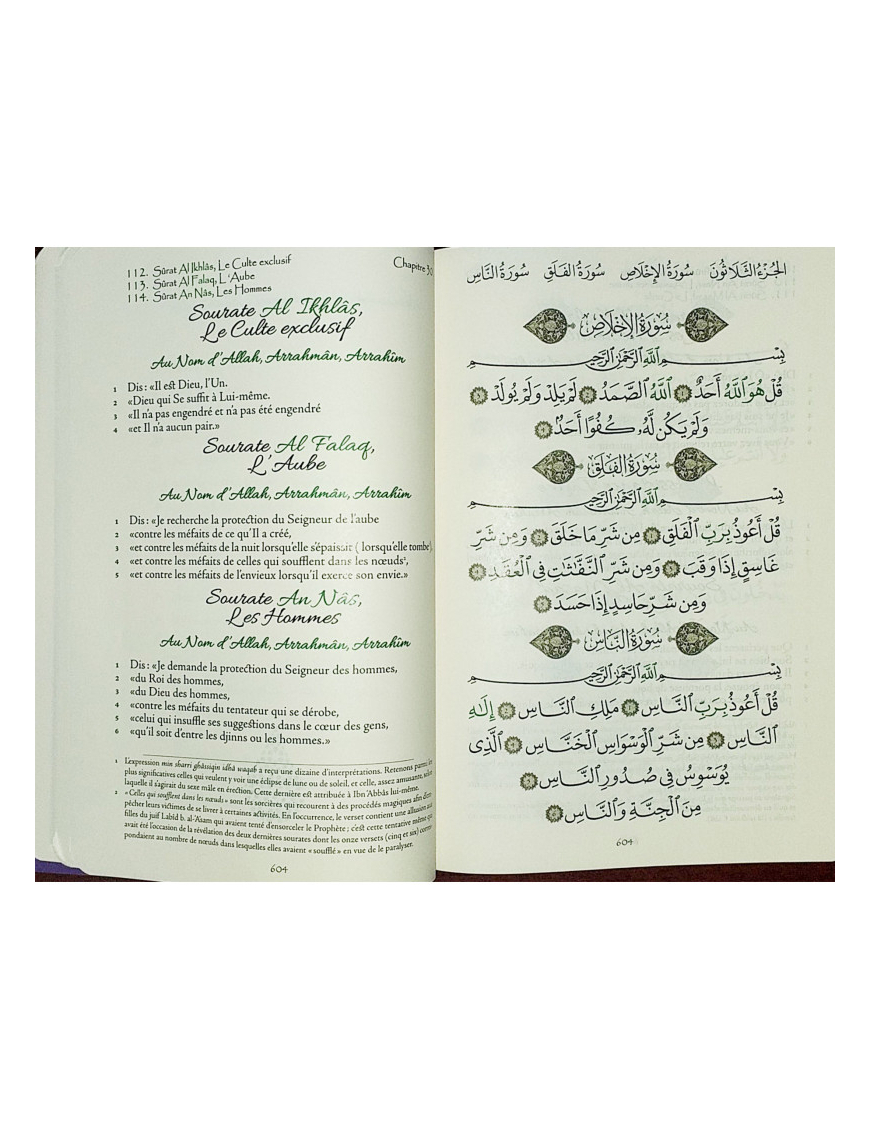 112. Sûrat Al Ikhlâs, Le Culte exclusif
113. Sûrat Al Falaq, L'Aube
114. Sûrat An Nâs, Les Hommes
Chapitre 30
Sourate Al Ikhlâs,
Le Culte exclusif
Au Nom d'Allah, Arrahmân, Arrahîm
1 Dis : «Il est Dieu, l'Un.
2 «Dieu qui Se suffit à Lui-même.
3 «Il n'a pas engendré et n'a pas été engendré
4 «et Il n'a aucun pair.»
Sourate Al Falaq,
L'Aube
Au Nom d'Allah, Arrahmân, Arrahîm
1 Dis : «Je recherche la protection du Seigneur de l'aube
2 «contre les méfaits de ce qu'Il a créé,
3 «et contre les méfaits de la nuit lorsqu'elle s'épaissit ( lorsqu'elle tombe¹),
4 «et contre les méfaits de celles qui soufflent dans les nœuds²,
5 «et contre les méfaits de l'envieux lorsqu'il exerce son envie.»
Sourate An Nâs,
Les Hommes
Au Nom d'Allah, Arrahmân, Arrahîm
1 Dis : «Je demande la protection du Seigneur des hommes,
2 «du Roi des hommes,
3 «du Dieu des hommes,
4 «contre les méfaits du tentateur qui se dérobe,
5 «celui qui insuffle ses suggestions dans le cœur des gens,
6 «qu'il soit d'entre les djinns ou les hommes.»
1 L'expression min sharri ghâssiqin idhâ waqab a reçu une dizaine d'interprétations. Retenons parmi les
plus significatives celles qui veulent y voir une éclipse de lune ou de soleil, et celle, assez amusante, selon
laquelle il s'agirait du sexe mâle en érection. Cette dernière est attribuée à Ibn 'Abbâs lui-même.
2 « Celles qui soufflent dans les nœuds » sont les sorcières qui recourent à des procédés magiques afin d'em-
pêcher leurs victimes de se livrer à certaines activités. En l'occurrence, le verset contient une allusion aux
filles du juif Labîd b. al-'Asam qui avaient tenté d'ensorceler le Prophète ; c'est cette tentative même qui
avait été l'occasion de la révélation des deux dernières sourates dont les onze versets (cinq et six) corres-
pondaient au nombre de nœuds dans lesquelles elles avaient « soufflé » en vue de le paralyser.
604
الجُزْءُ الثَّلَاثُونَ سُورَةُ الإِخْلَاصِ سُورَةُ الفَلَقِ سُورَةُ النَّاسِ
سُورَةُ الإِخْلَاصِ
بِسْمِ ٱللَّهِ ٱلرَّحْمَٰنِ ٱلرَّحِيمِ
قُلْ هُوَ ٱللَّهُ أَحَدٌ ١ ٱللَّهُ ٱلصَّمَدُ ٢ لَمْ يَلِدْ وَلَمْ يُولَدْ ٣
وَلَمْ يَكُن لَّهُۥ كُفُوًا أَحَدٌۢ ٤
سُورَةُ الفَلَقِ
بِسْمِ ٱللَّهِ ٱلرَّحْمَٰنِ ٱلرَّحِيمِ
قُلْ أَعُوذُ بِرَبِّ ٱلْفَلَقِ ١ مِن شَرِّ مَا خَلَقَ ٢ وَمِن شَرِّ
غَاسِقٍ إِذَا وَقَبَ ٣ وَمِن شَرِّ ٱلنَّفَّٰثَٰتِ فِى ٱلْعُقَدِ ٤
وَمِن شَرِّ حَاسِدٍ إِذَا حَسَدَ ٥
سُورَةُ النَّاسِ
بِسْمِ ٱللَّهِ ٱلرَّحْمَٰنِ ٱلرَّحِيمِ
قُلْ أَعُوذُ بِرَبِّ ٱلنَّاسِ ١ مَلِكِ ٱلنَّاسِ ٢ إِلَٰهِ
ٱلنَّاسِ ٣ مِن شَرِّ ٱلْوَسْوَاسِ ٱلْخَنَّاسِ ٤ ٱلَّذِى
يُوَسْوِسُ فِى صُدُورِ ٱلنَّاسِ ٥
مِنَ ٱلْجِنَّةِ وَٱلنَّاسِ ٦
604